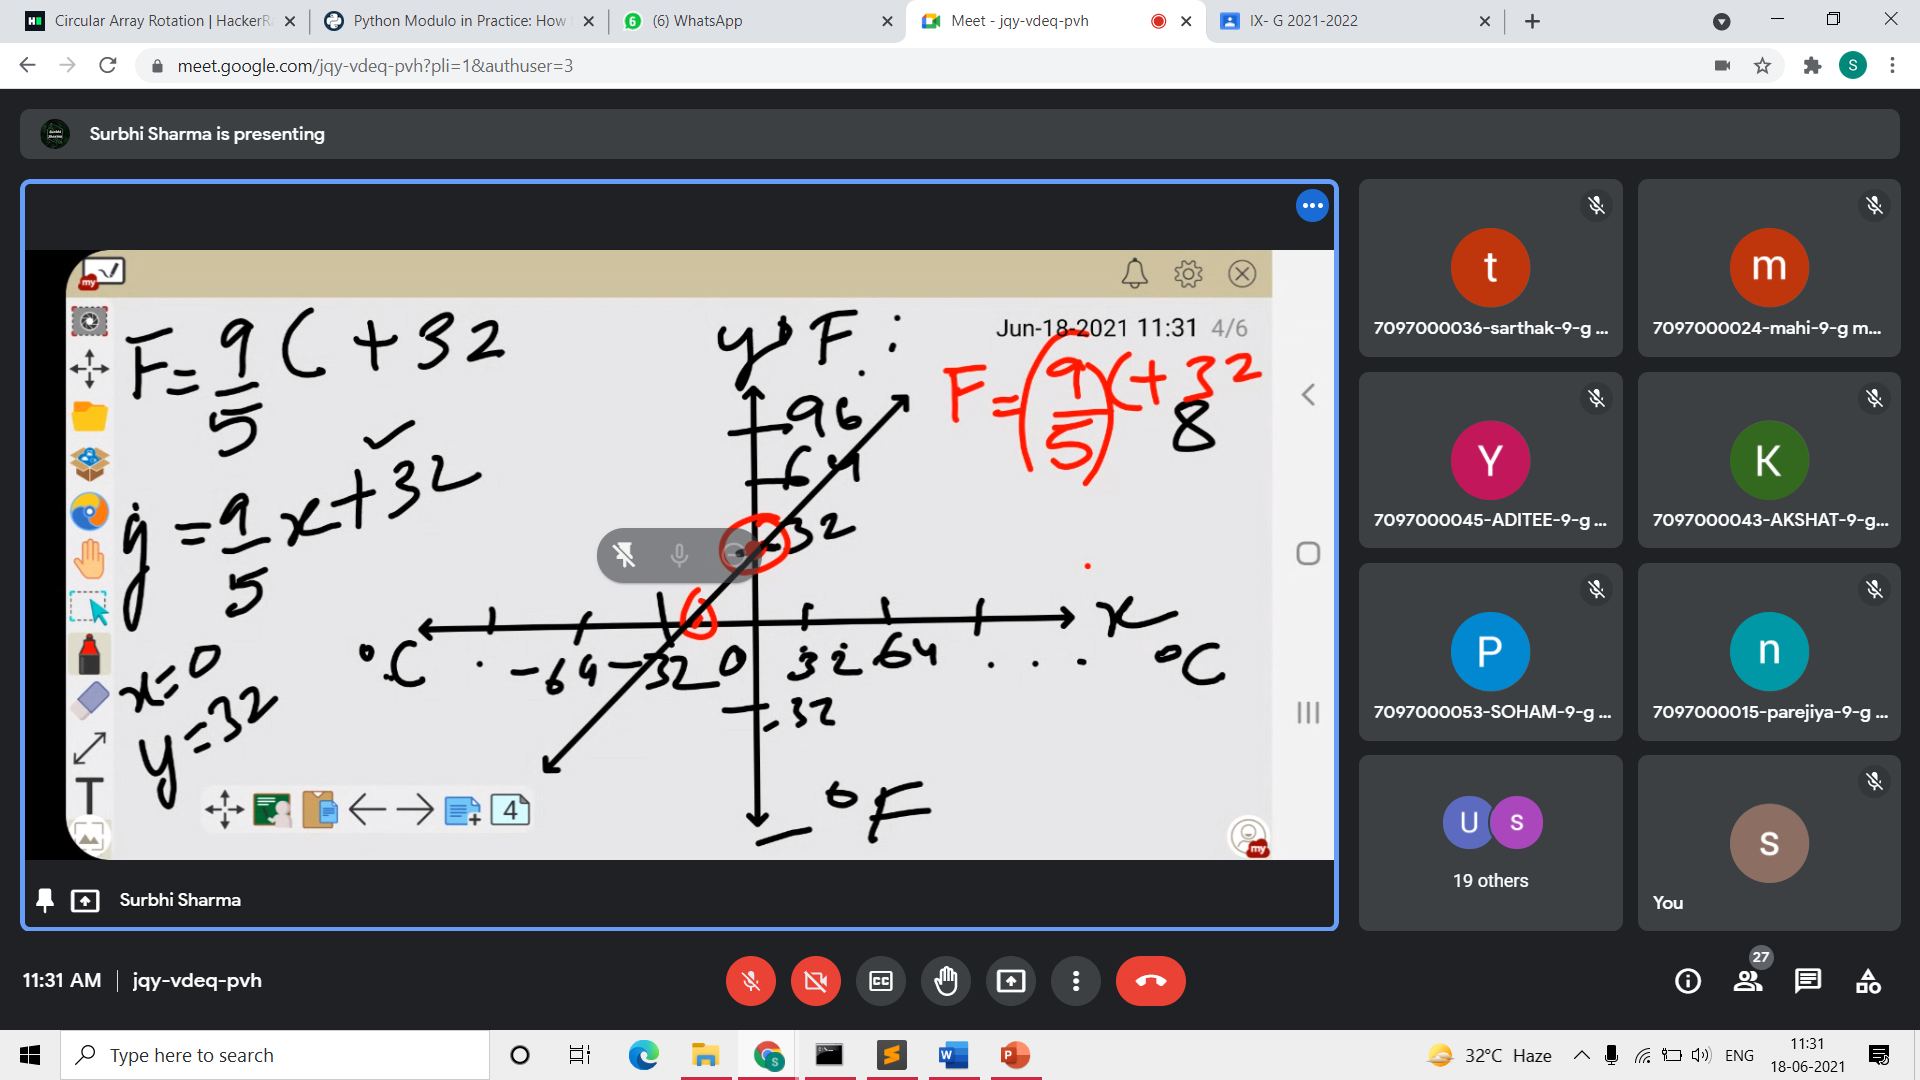 Circular Array Rotation | HackerR
Python Modulo in Practice: How
(6) WhatsApp
Meet - jqy-vdeq-pvh
IX- G 2021-2022
meet.google.com/jqy-vdeq-pvh?pli=1&authuser=3
S
Surbhi Sharma is presenting
Jun-18-2021 11:31 4/6
F = 9/5 C + 32
y → F :
F = (9/5) C + 32
8
y = 9/5 x + 32
96
64
32
x
°C
. -64 -32 0 32 64 . . .
°C
-32
°F
x = 0
y = 32
T
4
my
my
Surbhi Sharma
t
7097000036-sarthak-9-g ...
m
7097000024-mahi-9-g m...
Y
7097000045-ADITEE-9-g ...
K
7097000043-AKSHAT-9-g...
P
7097000053-SOHAM-9-g ...
n
7097000015-parejiya-9-g ...
U s
19 others
s
You
11:31 AM | jqy-vdeq-pvh
CC
27
Type here to search
32°C Haze
ENG
11:31
18-06-2021